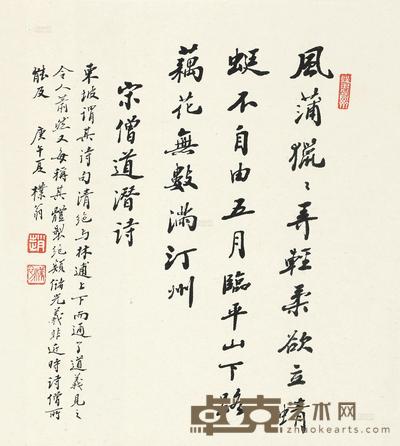 風蒲獵〻弄輕柔欲立蜻
蜓不自由五月臨平山下路
藕花無數滿汀州
宋僧道潛詩
東坡謂其詩句清絕与林逋上下而通了道義見之
令人蕭然又每稱其體製絕類儲光羲非近時詩僧所
能及 庚午夏 樸翁
卓克艺术网
www.zhuokearts.com